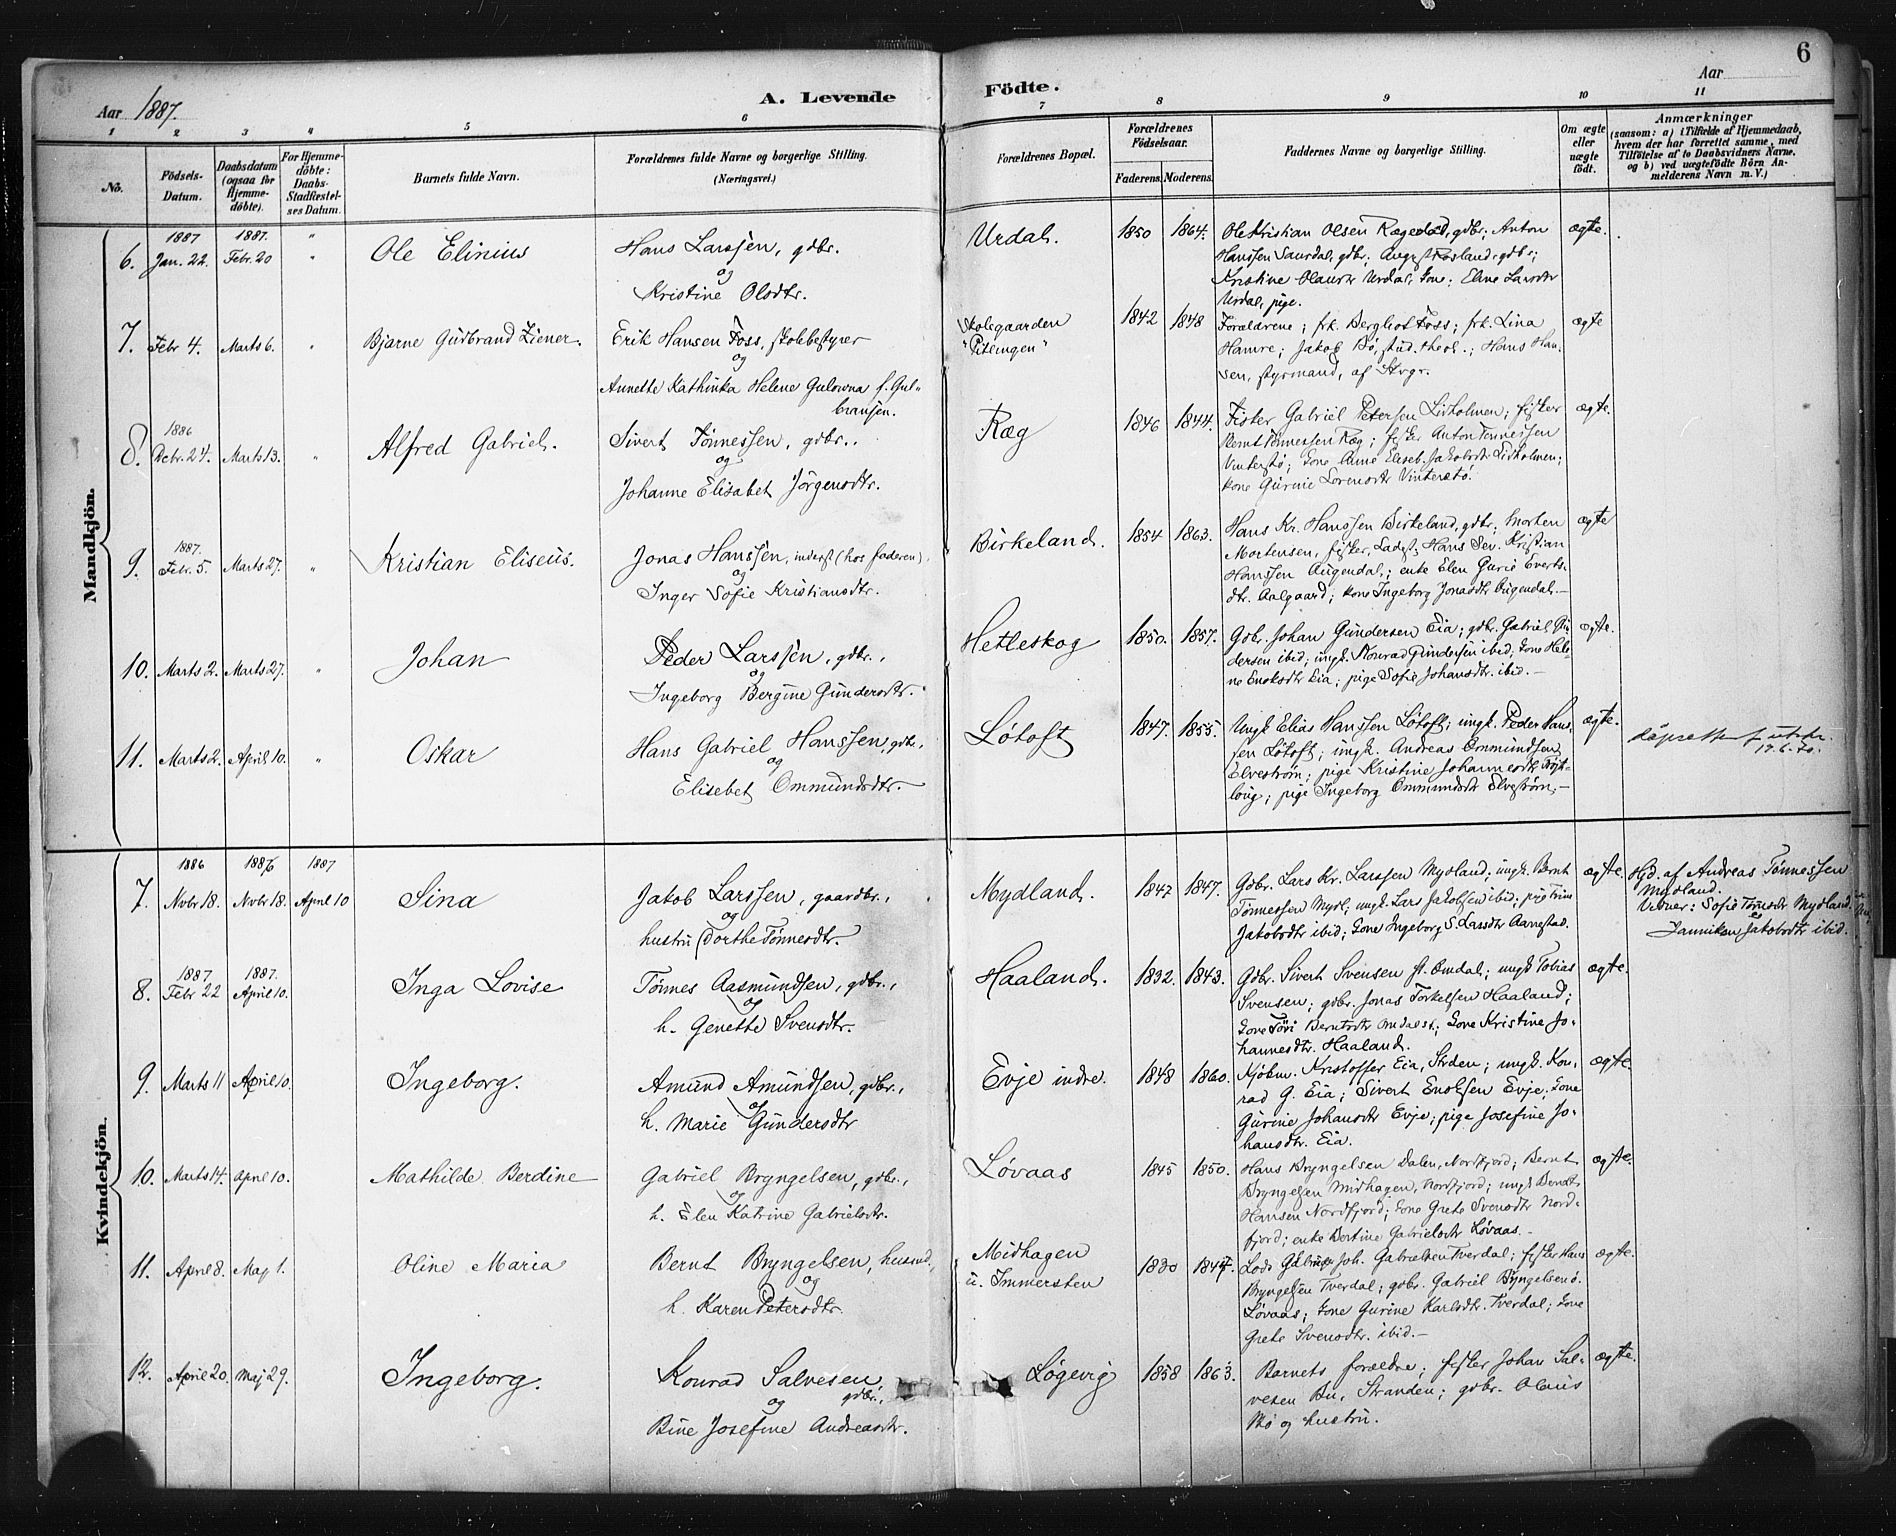 6
Aar 1887.
A. Levende Födte.
Aar
1 2 3 4 5 6 7 8 9 10 11
No.
Födsels-
Datum.
Daabsdatum
(ogsaa for
Hjemme-
döbte).
For Hjemme-
döbte:
Daabs-
Stadfæstel-
ses Datum.
Barnets fulde Navn.
Forældrenes fulde Navne og borgerlige Stilling.
(Næringsvei.)
Forældrenes Bopæl.
Forældrenes
Födselsaar.
Faderens. Moderens.
Faddernes Navne og borgerlige Stilling.
Om ægte
eller
uægte
födt.
Anmærkninger
(saasom: a) i Tilfælde af Hjemmedaab,
hvem der har forrettet samme, med
Tilföielse af to Daabsvidners Navne.
og b) ved uægtefödte Börn An-
melderens Navn m.V.)
Mandkjön.
6. 1887 Jan. 22. 1887. Febr. 20 " Ole Elinius
Hans Larssen, gdbr.
og
Kristine Olsdtr.
Urdal. 1850 1864.
Ole Kristian Olsen Rægedal, gdbr; Anton
Hanssen Saurdal, gdbr; August Røsland, gdbr;
Kristine Olausdtr Urdal, kone; Eline Larsdtr
Urdal, pige.
ægte.
7. Febr 4. Marts 6. " Bjarne Gudbrand Ziener.
Erik Hansen Foss, skolebestyrer
og
Annette Kathinka Helene Gulowna f. Gul-
bransen.
Skolegaarden
"Pitlingen"
1842 1848
Forældrene; frk. Bergliot Foss; frk. Lina
Hamre; Jakob Bø, stud. theol.; Hans Han-
sen, styrmand, af Stvgr.
ægte
8. 1886 Decbr. 24. Marts 13. " Alfred Gabriel.
Sivert Tønnessen, gdbr..
og
Johanne Elisabet Jørgensdtr.
Ræg 1846 1844.
Fisker Gabriel Petersen Lidholmen; fisker
Bernt Tønnessen Ræg; fisker Anton Tønnessen
Vinterstø; kone Anne Eliseb. Jakobsdtr Lidholmen;
kone Gurine Lorensdtr Vinterstø.
ægte.
9. 1887. Febr. 5. Marts 27. " Kristian Eliseus.
Jonas Hanssen, inderst (hos faderen).
og
Inger Sofie Kristiansdtr.
Birkeland. 1854 1863.
Hans Kr. Hanssen Birkeland, gdbr; Morten
Mortensen, fisker, Ladest; Hans Sev. Kristian
Hanssen Augendal,; enke Elen Gurie Everts-
dtr. Aalgaard; kone Ingeborg Jonasdtr Augendal.—
ægte
10. Marts 2. Marts 27. " Johan
Peder Larssen, gdbr.,
og
Ingeborg Bergine Gundersdtr.
Hetleskog 1850. 1857.
Gdb. Johan Gundersen Eia; gdbr. Gabriel Gun-
dersen ibid; ungk. Konrad Gundersen ibid, kone Hele-
ne Enoksdtr Eia; pige Sofie Johansdtr. ibid.—
ægte.
11. Marts 2. April 10. " Oskar
Hans Gabriel Hanssen, gdbr.,
og
Elisebet Ommundsdtr.—
Løtoft 1847. 1855.
Ungk Elias Hanssen Løtoft; ungk. Peder Hans-
sen Løtoft; ungk. Andreas Ommundsen
Elvestrøm; pige Kristine Johannesdtr
; pige Ingeborg Ommundsdtr Elvestrøm.—
ægte.
dåpsattest utstr.
Kvindekjön.
7. 1886 Novbr 18. 1886 Novbr 18. 1887 April 10 Sina
Jakob Larssen, gaardbr.,
og
hustru Dorthe Tønnesdtr.
Mydland. 1847 1847.
Gdbr. Lars Kr. Larssen Mydland; ungk. Bernt
Tønnessen Mydl; ungk. Lars Jakobsen ibid; pige Trine
Jakobsdtr ibid; kone Ingeborg S. Larsdtr Aarrestad.
ægte.
Hjd. af Andreas Tønnessen
Mydland.
Vidner: Sofie Tønnesdtr Mydland.
og
Janniken Jakobsdtr ibid.
8. 1887 Febr 22 1887. April 10. Inga Lovise
Tønnes Aasmundsen, gdbr.,
og
h. Genette Svensdtr.
Haaland. 1832. 1843.
Gdbr. Sivert Svensen st. Omdal; ungk Tobias
Svensen; gdbr. Jonas Torkelsen Haaland;
kone Tori Berntsdtr Omdal st.; kone Kristine Jo-
hannesdtr. Haaland.
ægte.
9. Marts 11 April 10. Ingeborg.
Amund Amundsen, gdbr.,
og
h. Marie Gundersdtr
Evje indre. 1848 1860.
Kjøbm. Kristoffer Eia, Strden; ungk. Kon-
rad G. Eia; Sivert Enoksen Evje; kone
Gurine Johansdtr Evje; pige Josefine Jo-
hansdtr. Eia.
ægte.
10. Marts 14. April 10. Mathilde Berdine
Gabriel Bryngelsen, gdbr.,
og
h. Elen Katrine Gabrielsdtr.
Løvaas 1845 1850.
Hans Bryngelsen Dalen, Nordfjord; Bernt
Bryngelsen Midhagen, Nordfjord; ungk Berndt
Hansen Nordfjord; kone Grete Svensdtr Nord-
fjord; enke Bertine Gabrielsdtr Løvaas.—
ægte.
11. April 8. Maj 1. Oline Maria
Bernt Bryngelsen, husmd.,
og
h. Karen Petersdtr.
Midhagen
u. Immersten
1830 1847.
Lods Gabriel Joh. Gabrielsen Tverdal; fisker Hans
Bryngelsen Tverdal; gdbr. Gabriel Bryngelsen ø.
Løvaas; kone Gurine Karlsdtr. Tverdal; kone
Grete Svensdtr. ibid.—
ægte.
12. April 20. Maj 29. Ingeborg.
Konrad Salvesen,
gdbr.,
og
Bine Josefine Andreasdtr.
Løgevig 1858 1863.
Barnets forældre; fisker Johan Sal-
vesen Bu, Stranden; gdbr. Olaus
Bø og hustru.
ægte.